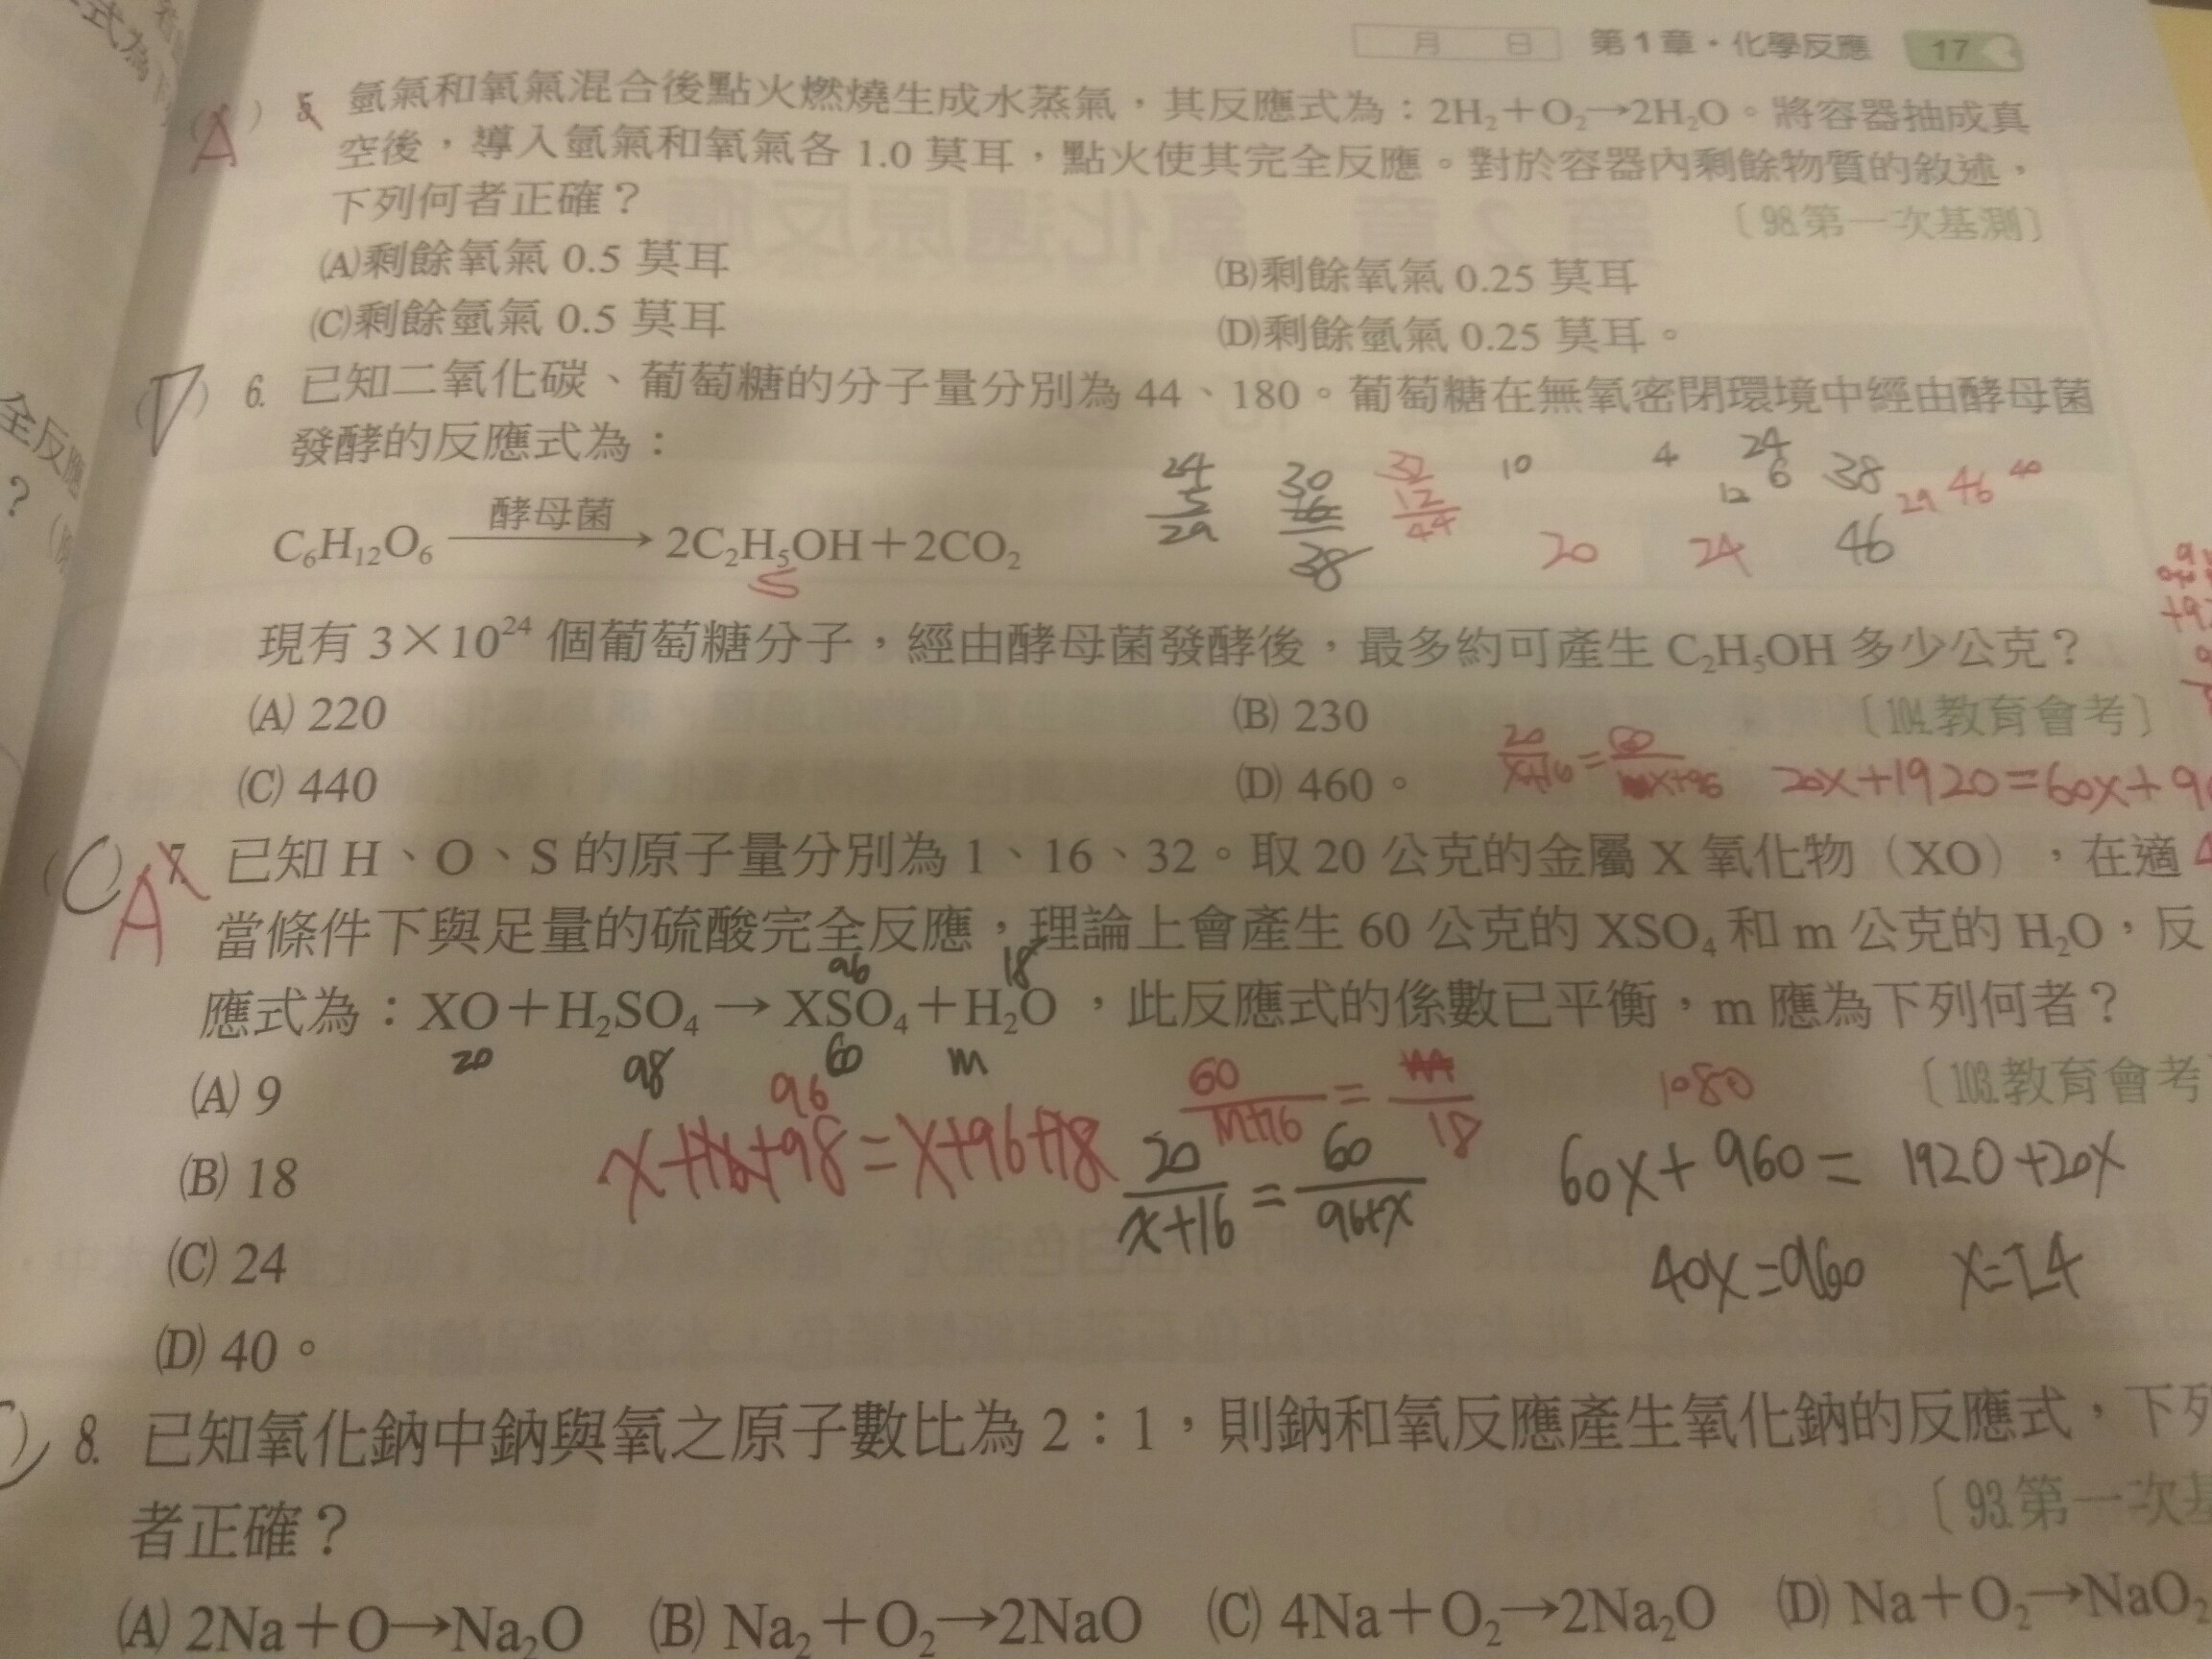 月 日 第1章・化學反應 17
A ) 5. 氫氣和氧氣混合後點火燃燒生成水蒸氣，其反應式為：2H₂＋O₂→2H₂O。將容器抽成真
空後，導入氫氣和氧氣各 1.0 莫耳，點火使其完全反應。對於容器內剩餘物質的敘述，
下列何者正確？ 〔98.第一次基測〕
(A)剩餘氧氣 0.5 莫耳 (B)剩餘氧氣 0.25 莫耳
(C)剩餘氫氣 0.5 莫耳 (D)剩餘氫氣 0.25 莫耳。
(D) 6. 已知二氧化碳、葡萄糖的分子量分別為 44、180。葡萄糖在無氧密閉環境中經由酵母菌
發酵的反應式為：
24 5 29 30 16 38 32 12 44 10 20 4 24 24 6 12 38 46 29 46 40
酵母菌
C₆H₁₂O₆ → 2C₂H₅OH＋2CO₂
5
現有 3×10²⁴ 個葡萄糖分子，經由酵母菌發酵後，最多約可產生 C₂H₅OH 多少公克？
(A) 220 (B) 230 〔104.教育會考〕
(C) 440 (D) 460。
20/x+16 = 60/x+96 20x+1920=60x+9
(C) A 7. 已知 H、O、S 的原子量分別為 1、16、32。取 20 公克的金屬 X 氧化物（XO），在適
當條件下與足量的硫酸完全反應，理論上會產生 60 公克的 XSO₄ 和 m 公克的 H₂O，反
96 18
應式為：XO＋H₂SO₄→XSO₄＋H₂O，此反應式的係數已平衡，m 應為下列何者？
20 98 60 m
(A) 9 〔103.教育會考
96 60/m+16 = /18 1080
x+16+98=x+96+18
(B) 18
20/x+16 = 60/96+x 60x+960=1920+20x
(C) 24
40x=960 x=24
(D) 40。
) 8. 已知氧化鈉中鈉與氧之原子數比為 2：1，則鈉和氧反應產生氧化鈉的反應式，下列
者正確？ 〔93.第一次基
(A) 2Na＋O→Na₂O (B) Na₂＋O₂→2NaO (C) 4Na＋O₂→2Na₂O (D) Na＋O₂→NaO₂